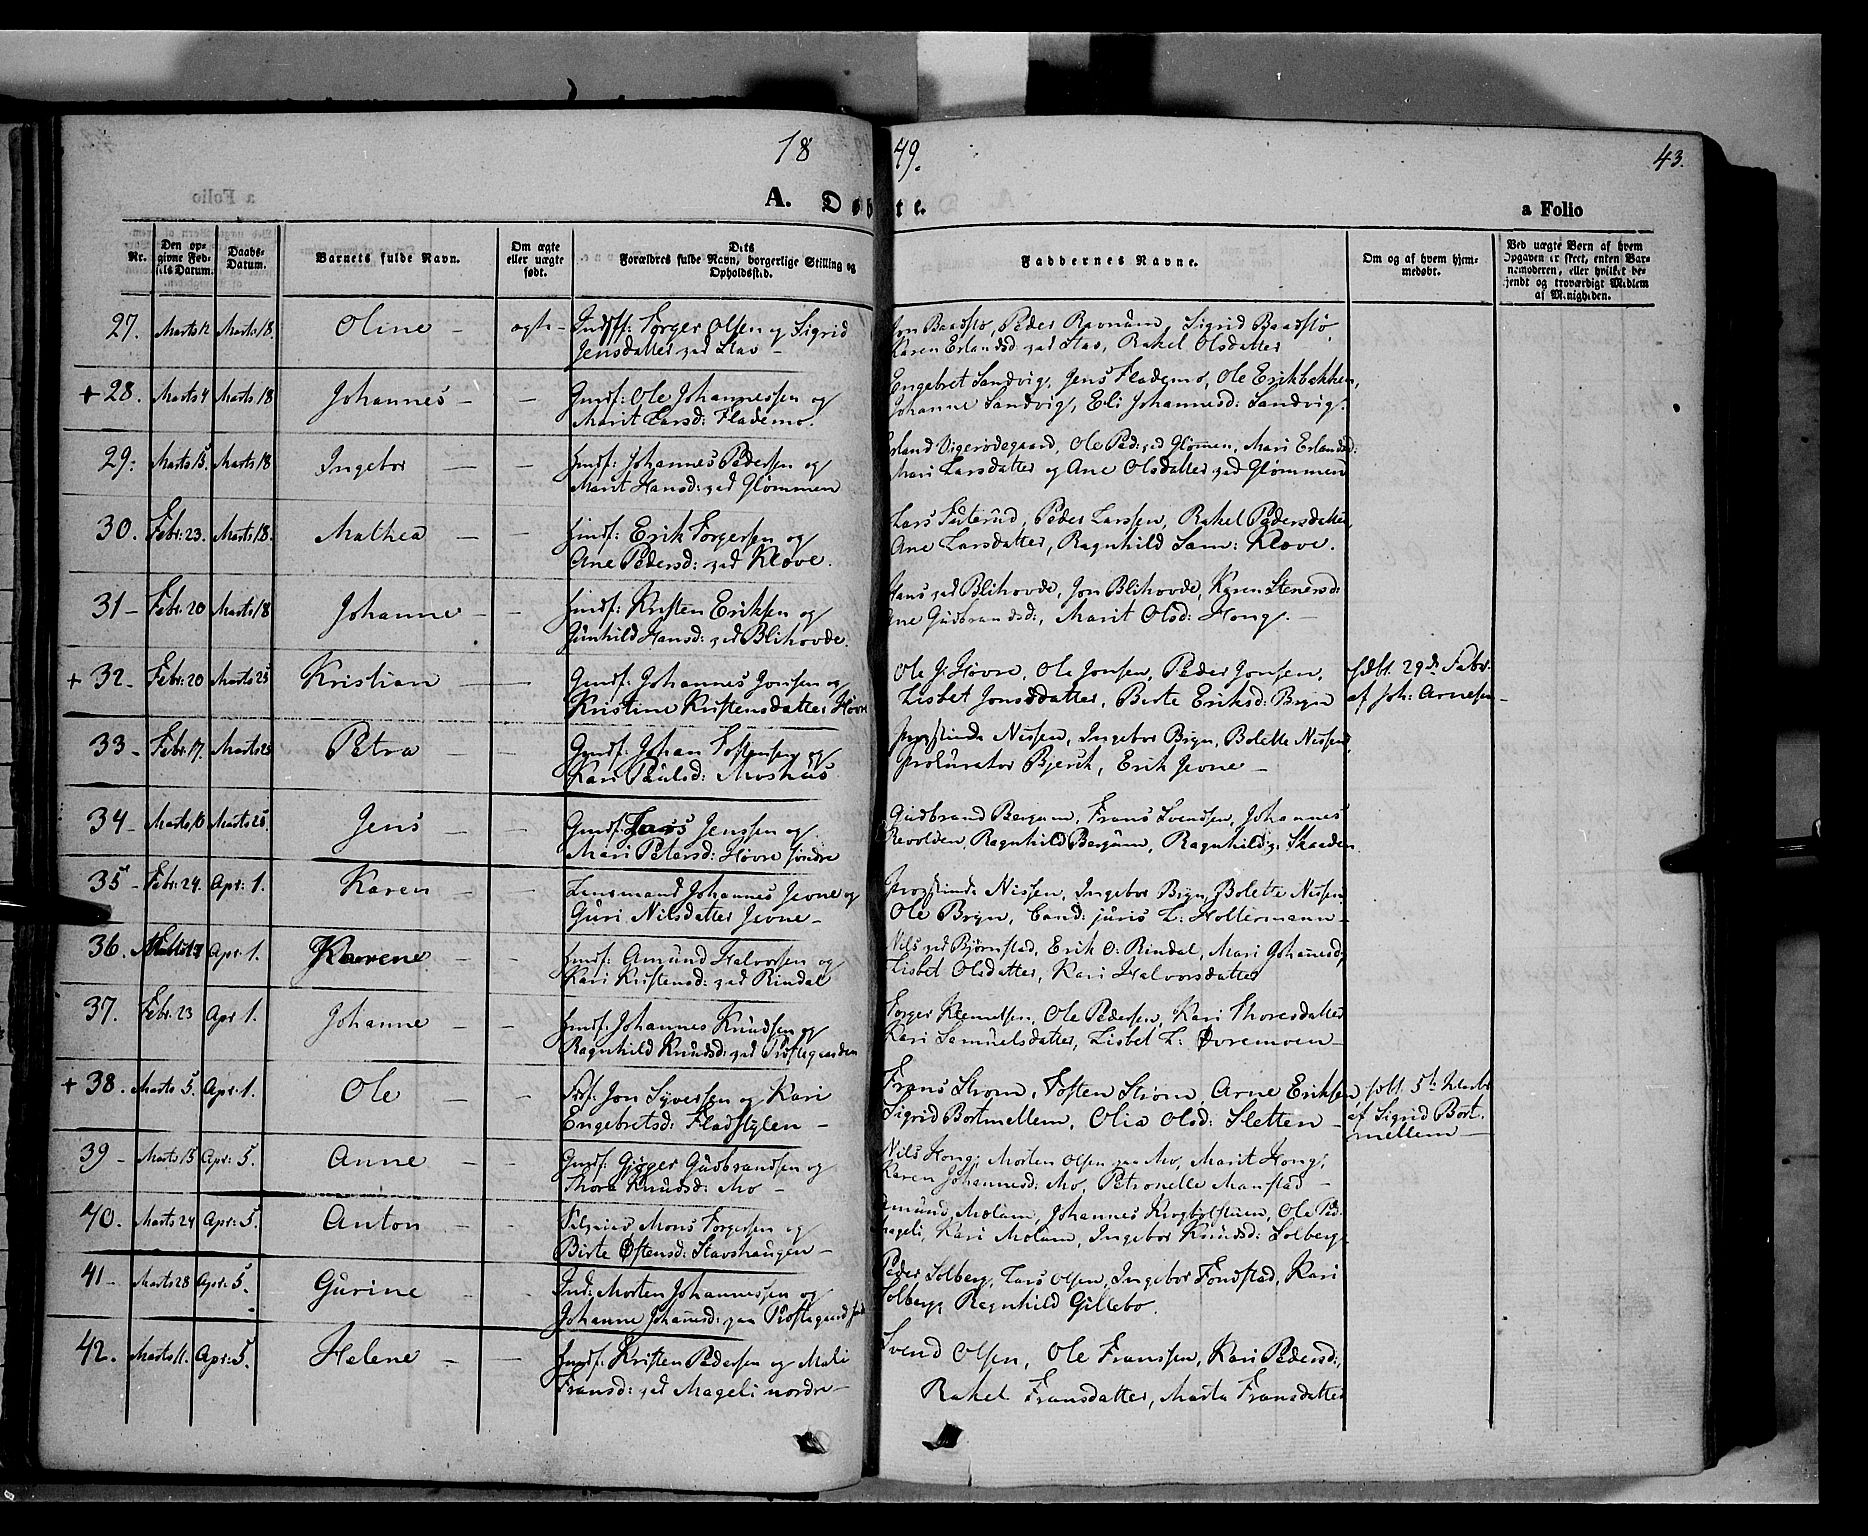 1849.
43.
A. Døbte.
a Folio
Nr.
Den opgivne Fødsels Datum.
Daabs-Datum.
Barnets fulde Navn.
Om ægte eller uægte født.
Dets Forældres fulde Navn, borgerlige Stilling og Opholdssted.
Faddernes Navne.
Om og af hvem hjemmedøbt.
Ved uægte Børn af hvem Opgaven er skeet, enten Barnemoderen, eller hvilket bekjendt og troværdigt Medlem af Menigheden.
27. Marts 12 Marts 18. Oline - ægte - Torger Olsen og Sigrid Jon Baadstø, Peder Ravnum, Sigrid Baadstø,
Jensdatter Stav - Karen Erlandsd: Stav, Rakel Olsdatter
+ 28. Marts 4 Marts 18 Johannes - - Gmdf: Ole Johannessen og Engebret Sandvig, Jens Flademo, Ole Erikbakken,
Marit Larsd: Flademo. Johanne Sandvig, Eli Johannesd: Sandvig.
29. Marts 15. Marts 18 Ingebor - - Johannes Pedersen og Erland Vigerødegaard, Ole Ped: Glømen, Mari Erlandsd:
Marit Hansd: Glømmen Mari Larsdatter og Ane Olsdatter Glømmen
30. Febr: 23. Marts 18. Mathea - - Erik Torgersen og Lars Peder Larssen, Rakel Pedersdatter,
Ane Pedersd: Kløve. Ane Larsdatter, Ragnhild Sam: Kløve.
31 - Febr: 20 Marts 18 Johanne - - Kristen Eriksen og Hans Blihovde, Jon Blihovde, Karen Stenersd:
Gunhild Hansd: Blihovde. Ane Gudbrandsd:, Marit Olsd: Hong. -
+ 32 - Febr: 20 Marts 25 Kristian - - Gmdf: Johannes Jonsen og Ole J: Høvre, Ole Jonsen, Peder Jonsen, 29de Febr:
Kristine Kristensdatter Høvre Lisbet Jonsdatter, Birte Eriksd: Bryn af Joh: Arnesen -
33 - Febr: 17. Marts 25 Petra - - Gmdf: Johan Tostensen og Nissen, Ingebor Bryn, Bolette Nissen,
Kari Paulsd: Moshuus. Prokurator Bjerck, Erik Jevne -
34 - Marts 10 Marts 25. Jens - - Gmdf: Lars Jenssen og Gudbrand Bergum, Frans Svendsen, Johannes
Mari Petersd: Høvre søndre Revolden, Ragnhild Bergum, Ragnhild Skaaden.
35 - Febr: 24. Apr: 1. Karen - - Lensmand Johannes Jevne og Nissen, Ingebor Bryn, Bolette Nissen
Guri Nilsdatter Jevne - Ole Bryn, Cand: juris L: Holtermann -
36. Apr: 1. Karene - - Amund Halvorsen og Nils Bjørnstad, Erik O: Rindal, Mari Johannesd:
Kari Kristensd: Rindal Lisbet Olsdatter, Kari Halvorsdatter
37. Febr. 23 Apr 1. Johanne - - Johannes Knudsen og Torger Klemetsen, Ole Pedersen, Kari Thoresdatter
Ragnhild Knudsd: Kari Samuelsdatter, Lisbet L: Øvremoen -
+ 38. Marts 5. Apr: 1. Ole - - Jon Syversen og Kari Frans Strøm, Tosten Strøm, Arne Eriksen, 5te Marts
Engebretsd: Fladstylen - Sigrid Bortmellem, Olia Olsd: Sletten - af Sigrid Bort-
mellem -
39 - Marts 15 Apr: 5. Anne - - Gmdf: Gudbrandsen og Nils Hong, Morten Olsen Mo, Marit Hong,
Thora Knudsd: Mo - Karen Johannesd: Mo, Petronelle Manstad -
40. Marts 24 Apr: 5. Anton - - Mons Torgersen og Amund Molum, Johannes Ole Ped:
Birte Østensd: Stavshaugen - Mageli, Kari Molum, Ingebor Knudsd: Solberg.
41 - Marts 28 Apr: 5. Gurine - - Morten Johannessen og Peder Solberg, Lars Olsen, Ingebor Fonstad, Kari
Johanne Johannesd: Solberg, Ragnhild Gillebo.
42. Marts 11. Apr: 5. Helene - - Kristen Pedersen og Mali Svend Olsen, Ole Franssen, Kari Pedersd:,
Fransd: Mageli nordre - Rakel Fransdatter, Marta Fransdatter